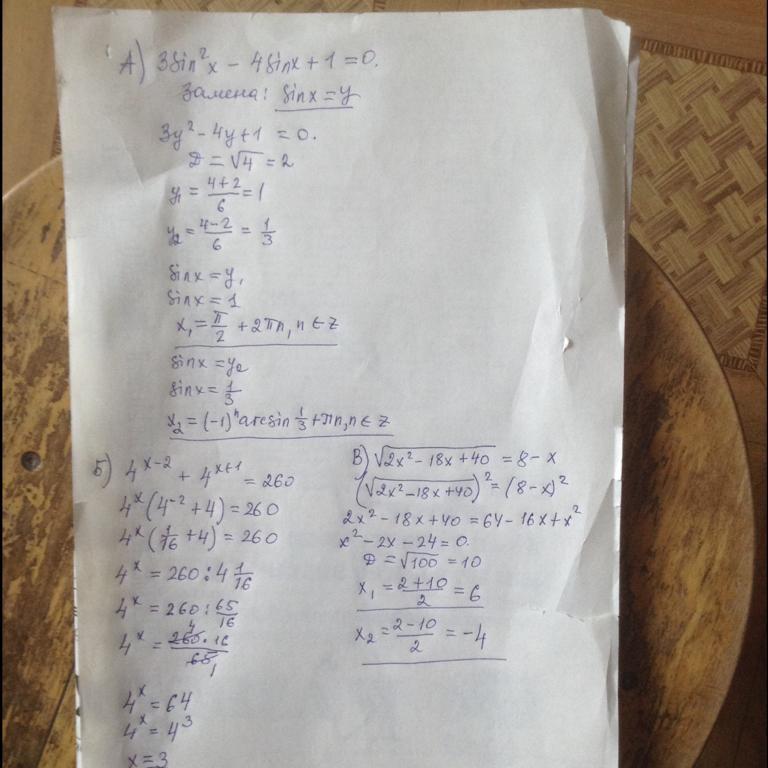 А) 3sin²x − 4sinx + 1 = 0.
Замена: sinx = y
3y² − 4y + 1 = 0.
D = √4 = 2
y₁ = (4+2)/6 = 1
y₂ = (4−2)/6 = 1/3
sinx = y₁
sinx = 1
x₁ = π/2 + 2πn, n ∈ Z
sinx = y₂
sinx = 1/3
x₂ = (−1)ⁿ arcsin 1/3 + πn, n ∈ Z
Б) 4^(x−2) + 4^(x+1) = 260
4^x (4^(−2) + 4) = 260
4^x (1/16 + 4) = 260
4^x = 260 : 4 1/16
4^x = 260 : 65/16
4^x = (260 4 · 16)/(65 1)
4^x = 64
4^x = 4³
x = 3
В) √(2x² − 18x + 40) = 8 − x
(√(2x² − 18x + 40))² = (8 − x)²
2x² − 18x + 40 = 64 − 16x + x²
x² − 2x − 24 = 0.
D = √100 = 10
x₁ = (2+10)/2 = 6
x₂ = (2−10)/2 = −4